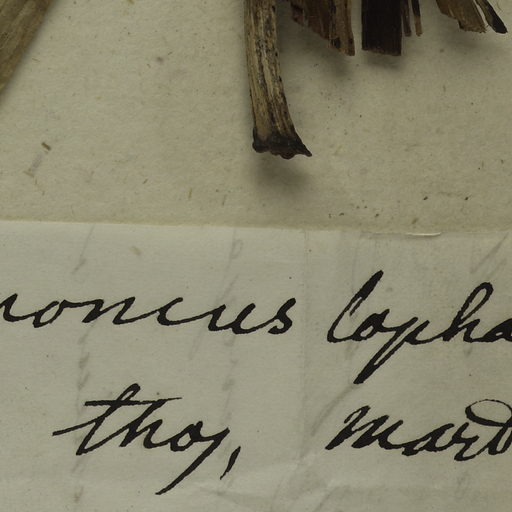 noncus lopha
thoy, mard